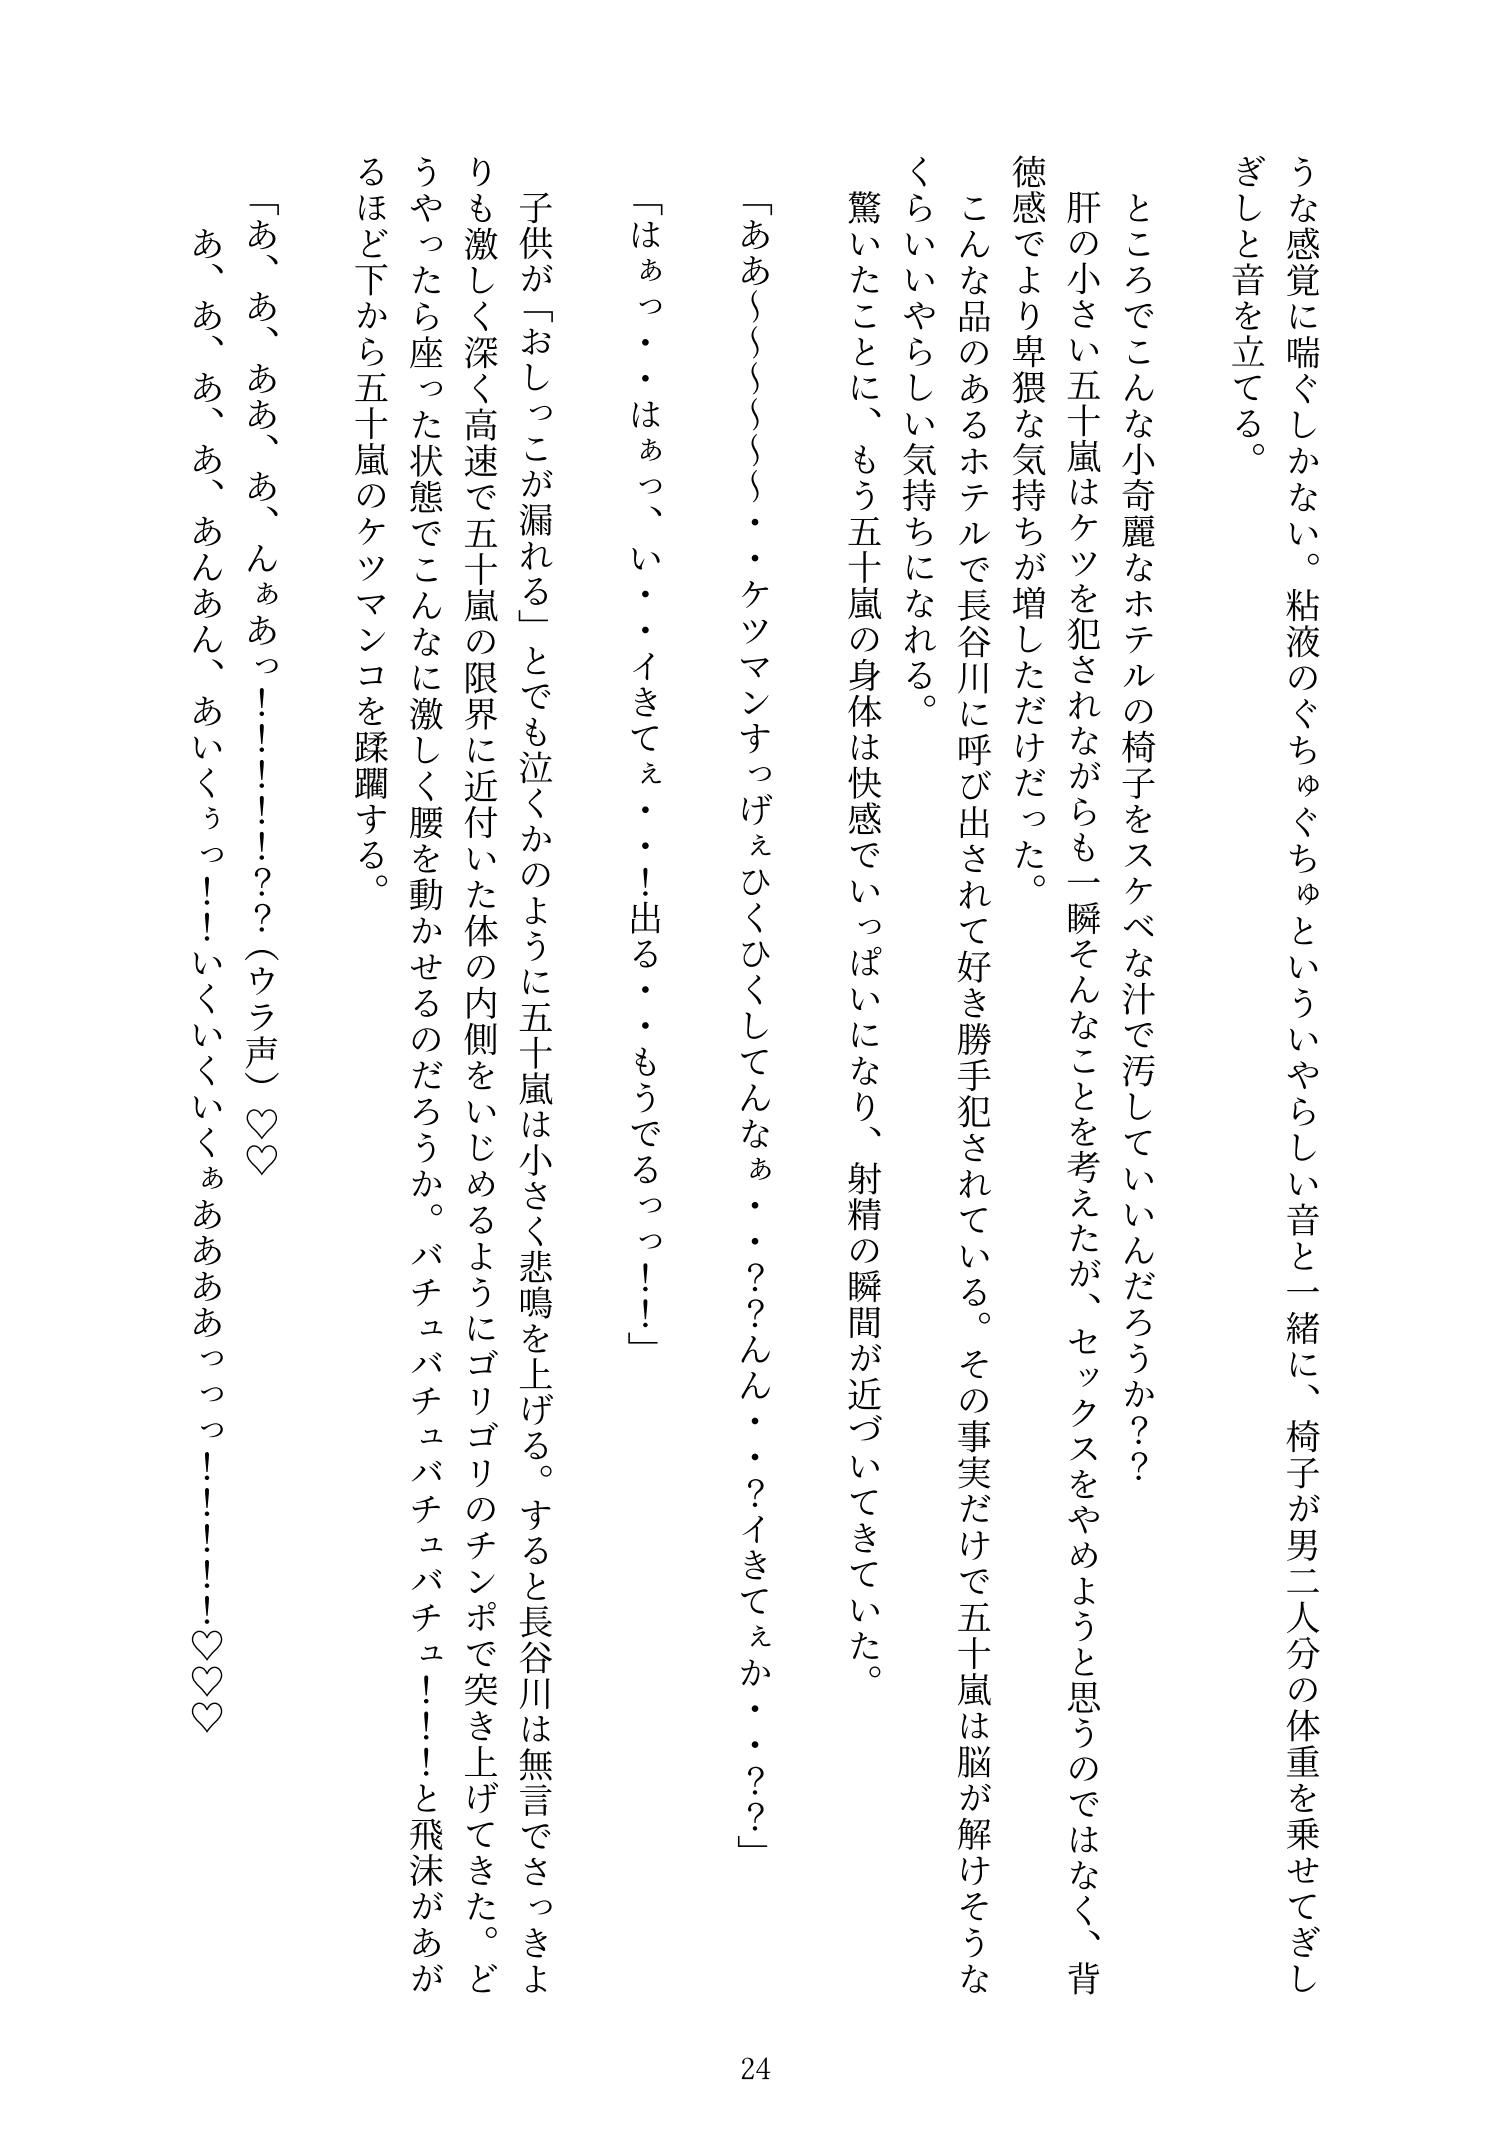 うな感覚に喘ぐしかない。粘液のぐちゅぐちゅといういやらしい音と一緒に、椅子が男二人分の体重を乗せてぎし
ぎしと音を立てる。
ところでこんな小奇麗なホテルの椅子をスケベな汁で汚していいんだろうか？？
肝の小さい五十嵐はケツを犯されながらも一瞬そんなことを考えたが、セックスをやめようと思うのではなく、背
徳感でより卑猥な気持ちが増しただけだった。
こんな品のあるホテルで長谷川に呼び出されて好き勝手犯されている。その事実だけで五十嵐は脳が解けそうな
くらいいやらしい気持ちになれる。
驚いたことに、もう五十嵐の身体は快感でいっぱいになり、射精の瞬間が近づいてきていた。
「ああ～～～～～～・・ケツマンすっげぇひくひくしてんなぁ・・？？んん・・？イきてぇか・・？？」
「はぁっ・・はぁっ、い・・イきてぇ・・！出る・・もうでるっっ！！」
子供が「おしっこが漏れる」とでも泣くかのように五十嵐は小さく悲鳴を上げる。すると長谷川は無言でさっきよ
りも激しく深く高速で五十嵐の限界に近付いた体の内側をいじめるようにゴリゴリのチンポで突き上げてきた。ど
うやったら座った状態でこんなに激しく腰を動かせるのだろうか。バチュバチュバチュバチュ！！！と飛沫があが
るほど下から五十嵐のケツマンコを蹂躙する。
「あ、あ、ああ、あ、んぁあっ！！！！！？？（ウラ声）♡♡
あ、あ、あ、あ、あんあん、あいくぅっ！！いくいくいくぁああああっっっ！！！！！♡♡♡
24